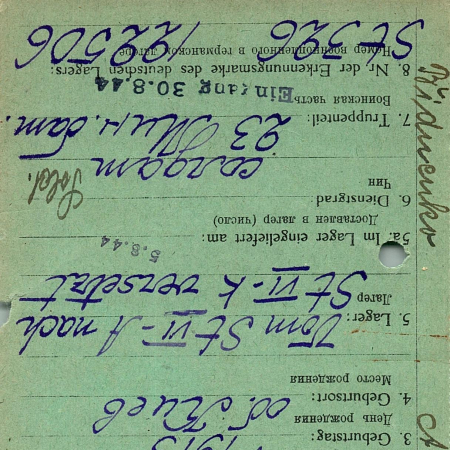 3 Geburtstag:
День рождения
4. Geburtsort: об. Киев
Место рождения
5. Lager: Vom St VI-A nach
Лагер St VI-K versetzt
5a. Im Lager eingeliefert am: 5.8.44
Доставлен в лагер (число)
6. Dienstgrad Sold.
Чин солдат
7. Truppenteil: 23 Мин. бат.
Воинская часть Eingang 30.8.44
8. Nr. der Erkennungsmarke des deutschen Lagers:
Номер военнопленного в германском лагере
St 326 122506